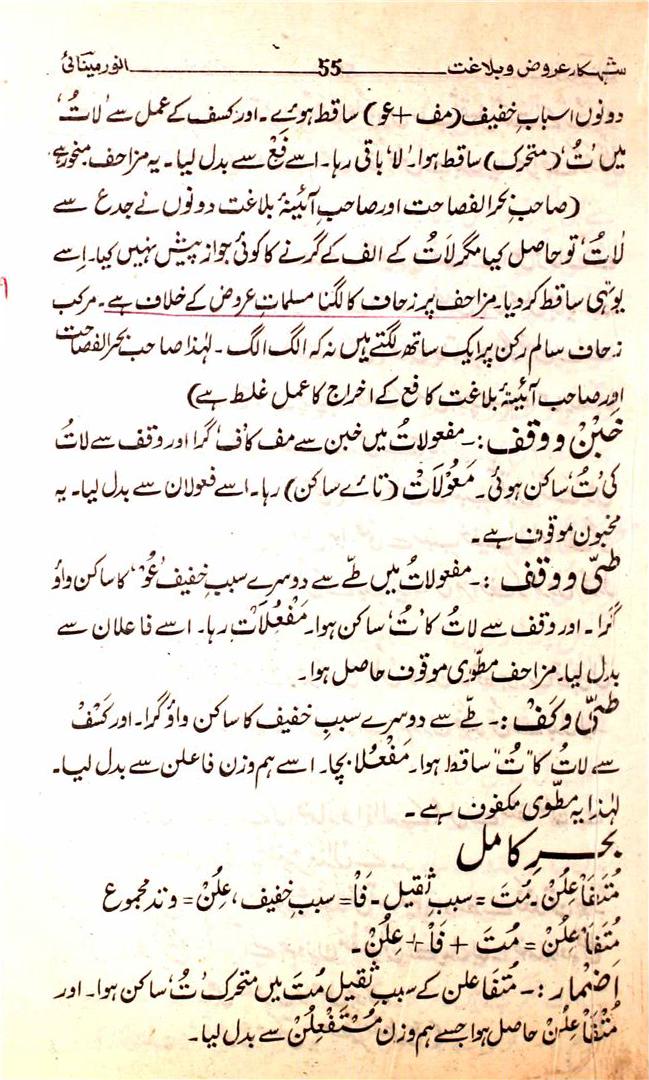 شہکار عروض و بلاغت 55 انور مینائی
دونوں اسبابِ خفیف (مف + عو) ساقط ہوئے۔ اور کسف کے عمل سے ’لاتُ‘
میں ’تُ‘ (متحرک) ساقط ہوا۔ ’لا‘ باقی رہا۔ اسے فَعْ سے بدل لیا۔ یہ مزاحف منحور ہے۔
(صاحبِ بحرالفصاحت اور صاحبِ آئینۂ بلاغت دونوں نے جدع سے
لاتُ‘ تو حاصل کیا مگر لاَتُ کے الف کے گرنے کا کوئی جواز پیش نہیں کیا۔ اِسے
یوںہی ساقط کر دیا۔ مزاحف پر زحاف کا لگنا مسلماتِ عروض کے خلاف ہے۔ مرکب
زحاف سالم رکن پر ایک ساتھ لگتے ہیں نہ کہ الگ الگ۔ لہٰذا صاحب بحرالفصاحت
اور صاحبِ آئینۂ بلاغت کا فع کے اخراج کا عمل غلط ہے)
خَبْنْ و وقف :۔ مفعولاتُ میں خبن سے مف کا ’ف‘ گرا اور وقف سے لاتُ
کی ’تُ‘ ساکن ہوئی۔ مَعُوْلَاتْ (تائے ساکن) رہا۔ اسے فعولان سے بدل لیا۔ یہ
مخبون موقوف ہے۔
طیّ و وقف :۔ مفعولاتُ میں طے سے دوسرے سببِ خفیف ’عُوْ‘ کا ساکن واؤ
گرا۔ اور وقف سے لاتُ کا ’تُ‘ ساکن ہوا۔ مَفْعُلَاتْ رہا۔ اسے فاعلان سے
بدل لیا۔ مزاحف مطوّی موقوف حاصل ہوا۔
طیّ و کَفْ :۔ طے سے دوسرے سببِ خفیف کا ساکن واؤ گرا۔ اور کسْف
سے لاتُ کا ”تُ“ ساقط ہوا۔ مَفْعُلا بچا۔ اسے ہم وزن فاعلن سے بدل لیا۔
لہٰذا یہ مطوّی مکفوف ہے۔
بحرِ کامل
مُتَفَاْعِلُنْ۔ مُتَ = سببِ ثقیل۔ فَاْ = سببِ خفیف، عِلُنْ = وتد مجموع
مُتَفَاْعِلُنْ = مُتَ + فَاْ + عِلُنْ۔
اِضمار :۔ مُتَفَاعلن کے سببِ ثقیل مُتَ میں متحرک ’تُ‘ ساکن ہوا۔ اور
مُتْفَاْعِلُنْ حاصل ہوا جسے ہم وزن مُسْتَفْعِلُنْ سے بدل لیا۔